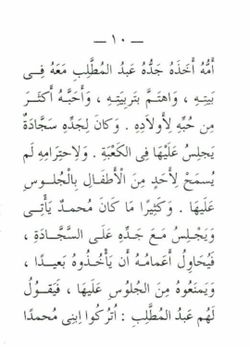 — ١٠ —
أُمُّهُ أَخَذَهُ جَدُّهُ عَبدُ المُطَّلِبِ مَعَهُ فِى
بَيتِـهِ . وَاهتَمَّ بِتَربِيَتِـهِ ، وَأَحَبَّـهُ أَكثَـرَ
مِن حُبِّهِ لِأَولَادِهِ . وَكَانَ لِجَدِّهِ سَجَّادَةٌ
يَجلِسُ عَلَيهَا فِى الكَعبَةِ . وَلِاحتِرَامِهِ لَم
يُسمَحْ لِأَحَدٍ مِنَ الأَطفَالِ بِالجُلُوسِ
عَلَيهَـا . وَكَثِيرًا مَا كَانَ مُحمدٌ يَأتِـى
وَيَجْلِسُ مَـعَ جَدِّهِ عَلَـى السَّجَّـادَةِ ،
فَيُحَاوِلُ أَعمَامُـهُ أَن يَأخُـذُوهُ بَعِيـدًا ،
وَيَمنَعُوهُ مِنَ الجُلُوسِ عَلَيهَا ، فَيَقُولُ
لَهُم عَبدُ المُطَّلِبِ : اُترُكُوا اِبنِى مُحمدًا